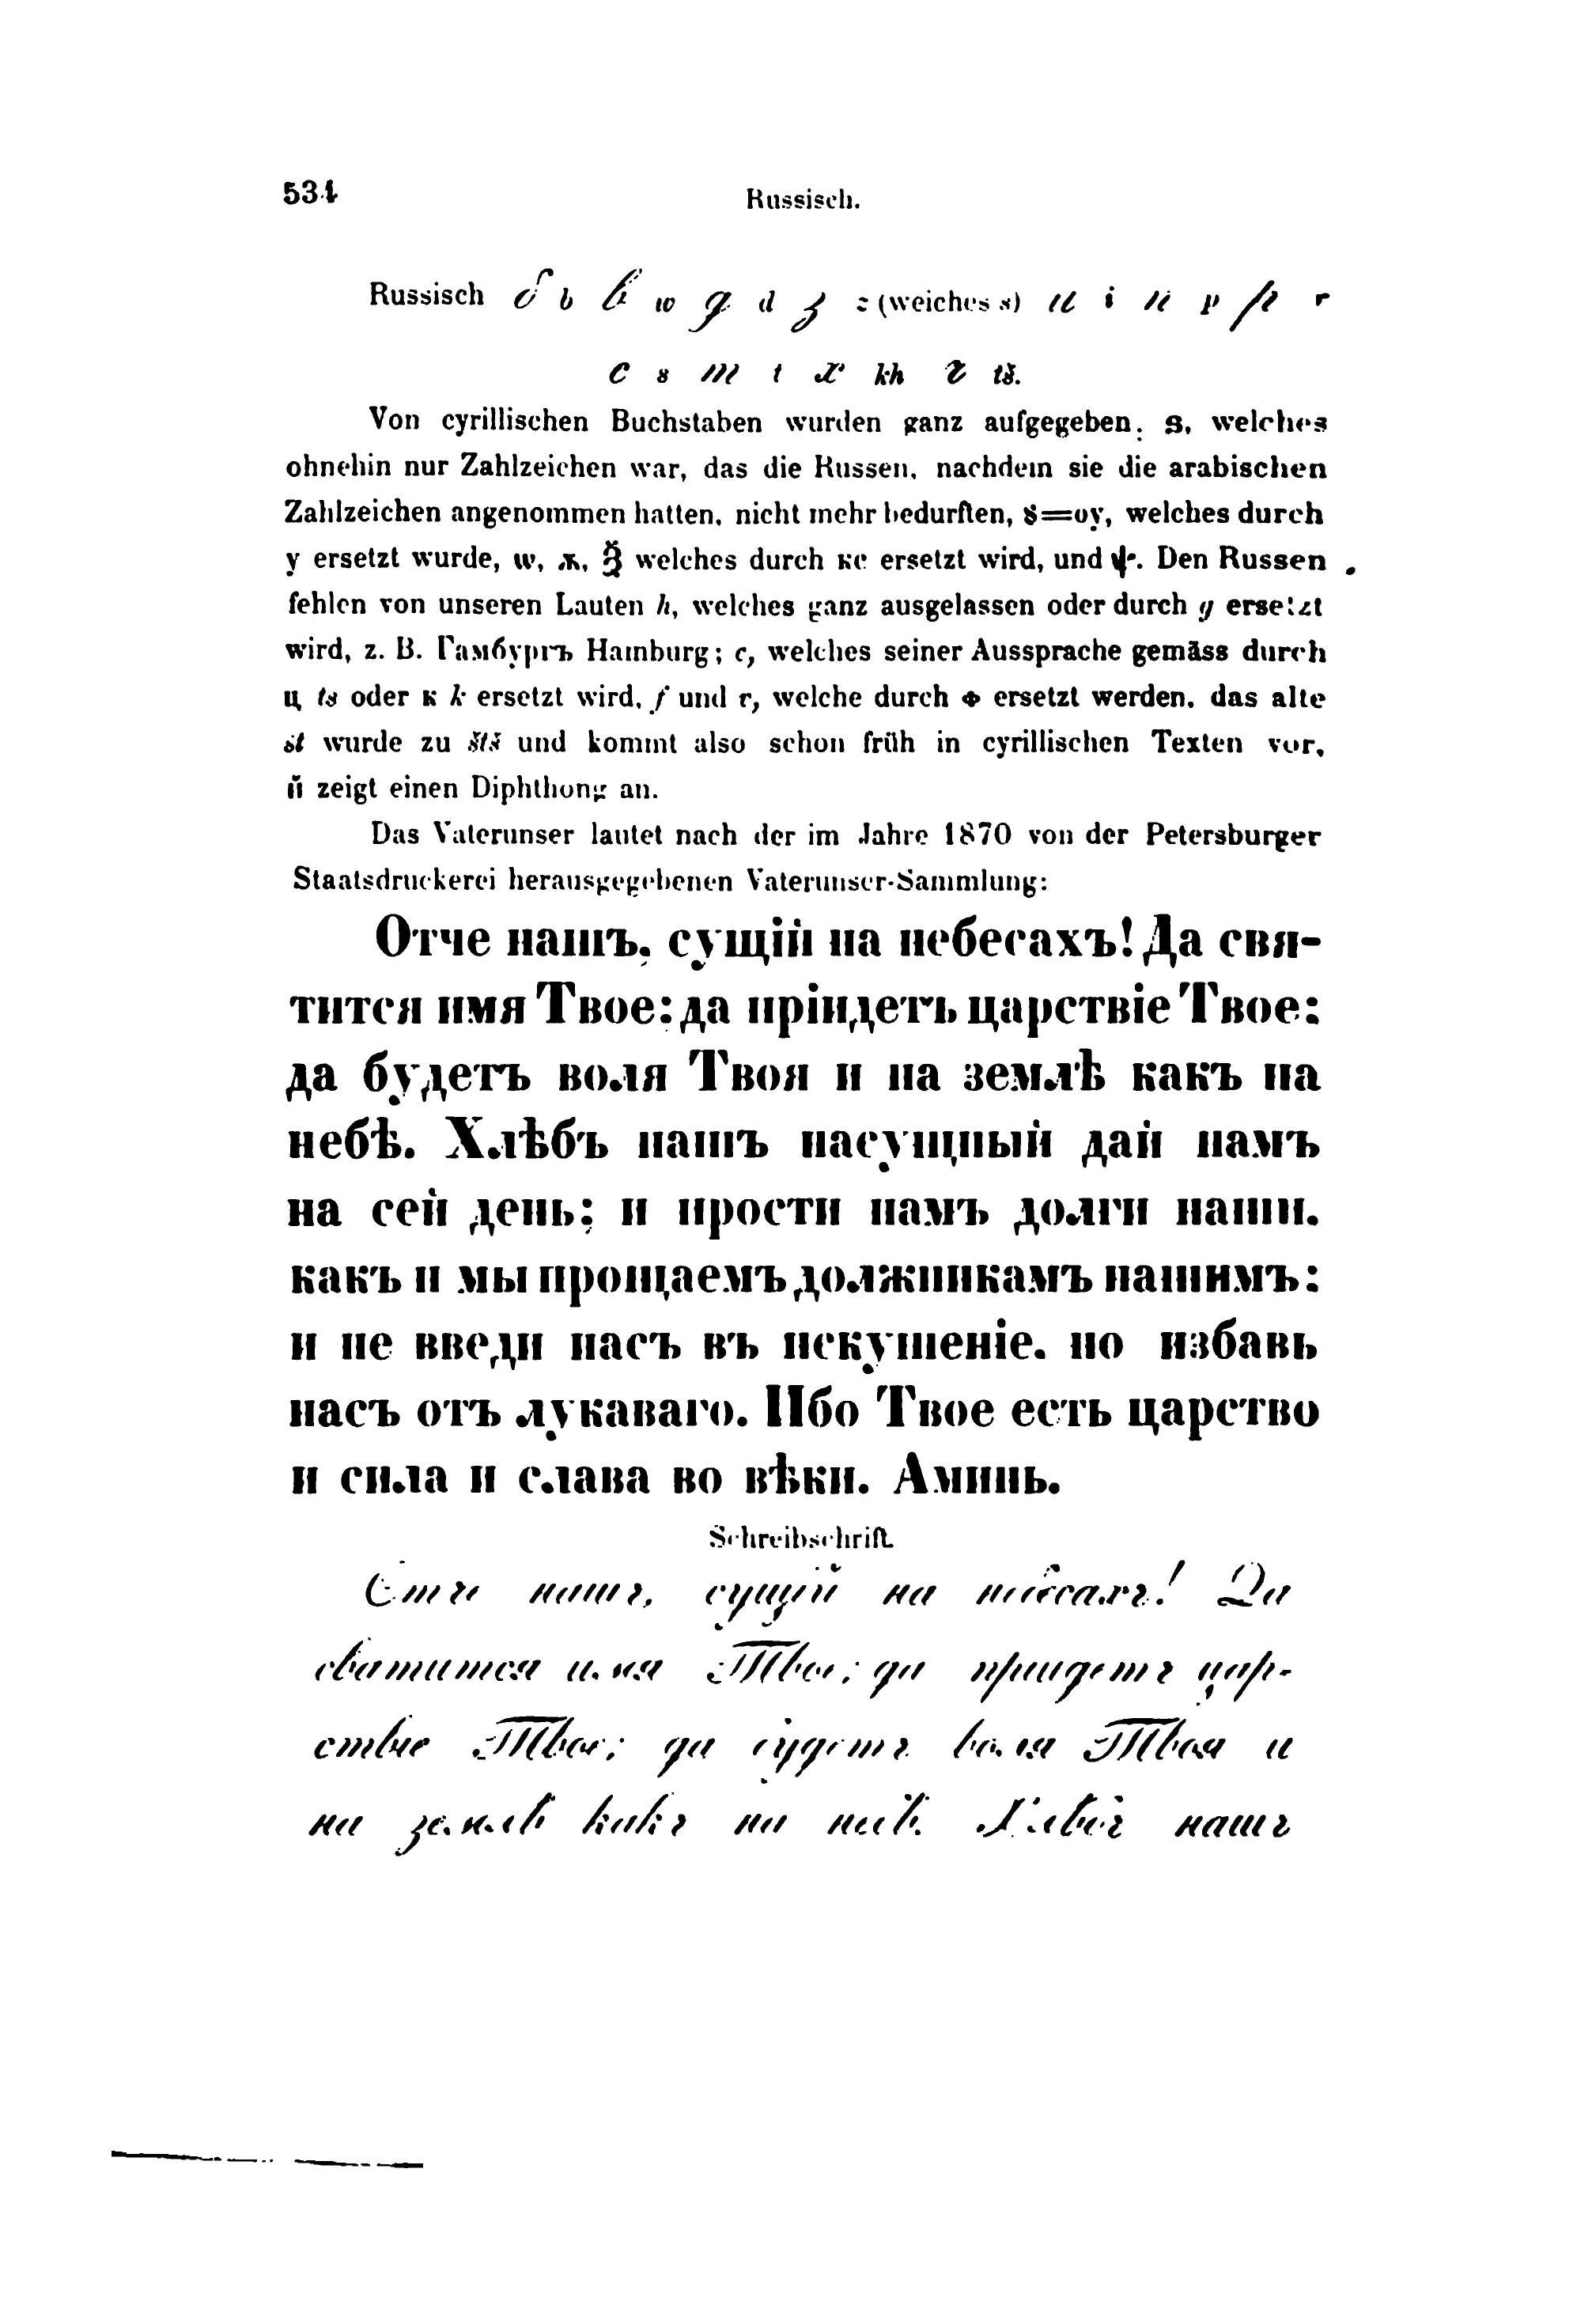 534
Russisch.
Russisch б b в w д d з z (weiches s) и i п p р r
с s т t х kh ч tš.
Von cyrillischen Buchstaben wurden ganz aufgegeben: ѕ, welches
ohnehin nur Zahlzeichen war, das die Russen, nachdem sie die arabischen
Zahlzeichen angenommen hatten, nicht mehr bedurften, ȣ=оу, welches durch
у ersetzt wurde, w, ѫ, ѯ welches durch кс ersetzt wird, und ѱ. Den Russen
fehlen von unseren Lauten h, welches ganz ausgelassen oder durch g ersetzt
wird, z. B. Гамбургъ Hamburg; c, welches seiner Aussprache gemäss durch
ц ts oder к k ersetzt wird, f und v, welche durch Ф ersetzt werden. das alte
št wurde zu štš und kommt also schon früh in cyrillischen Texten vor,
й zeigt einen Diphthong an.
Das Vaterunser lautet nach der im Jahre 1870 von der Petersburger
Staatsdruckerei herausgegebenen Vaterunser-Sammlung:
Отче нашъ, сущій на небесахъ! Да свя-
тится имя Твое: да пріидетъ царствіе Твое:
да будетъ воля Твоя и на землѣ какъ на
небѣ. Хлѣбъ нашъ насущный дай намъ
на сей день; и прости намъ долги наши.
какъ и мы прощаемъ должникамъ нашимъ:
и не введи насъ въ искушеніе. но избавь
насъ отъ лукаваго. Ибо Твое есть царство
и сила и слава во вѣки. Аминь.
Schreibschrift.
Отче нашъ, сущій на небесахъ! Да
святится имя Твое; да пріидетъ цар-
ствіе Твое; да будетъ воля Твоя и
на землѣ какъ на небѣ. Хлѣбъ нашъ